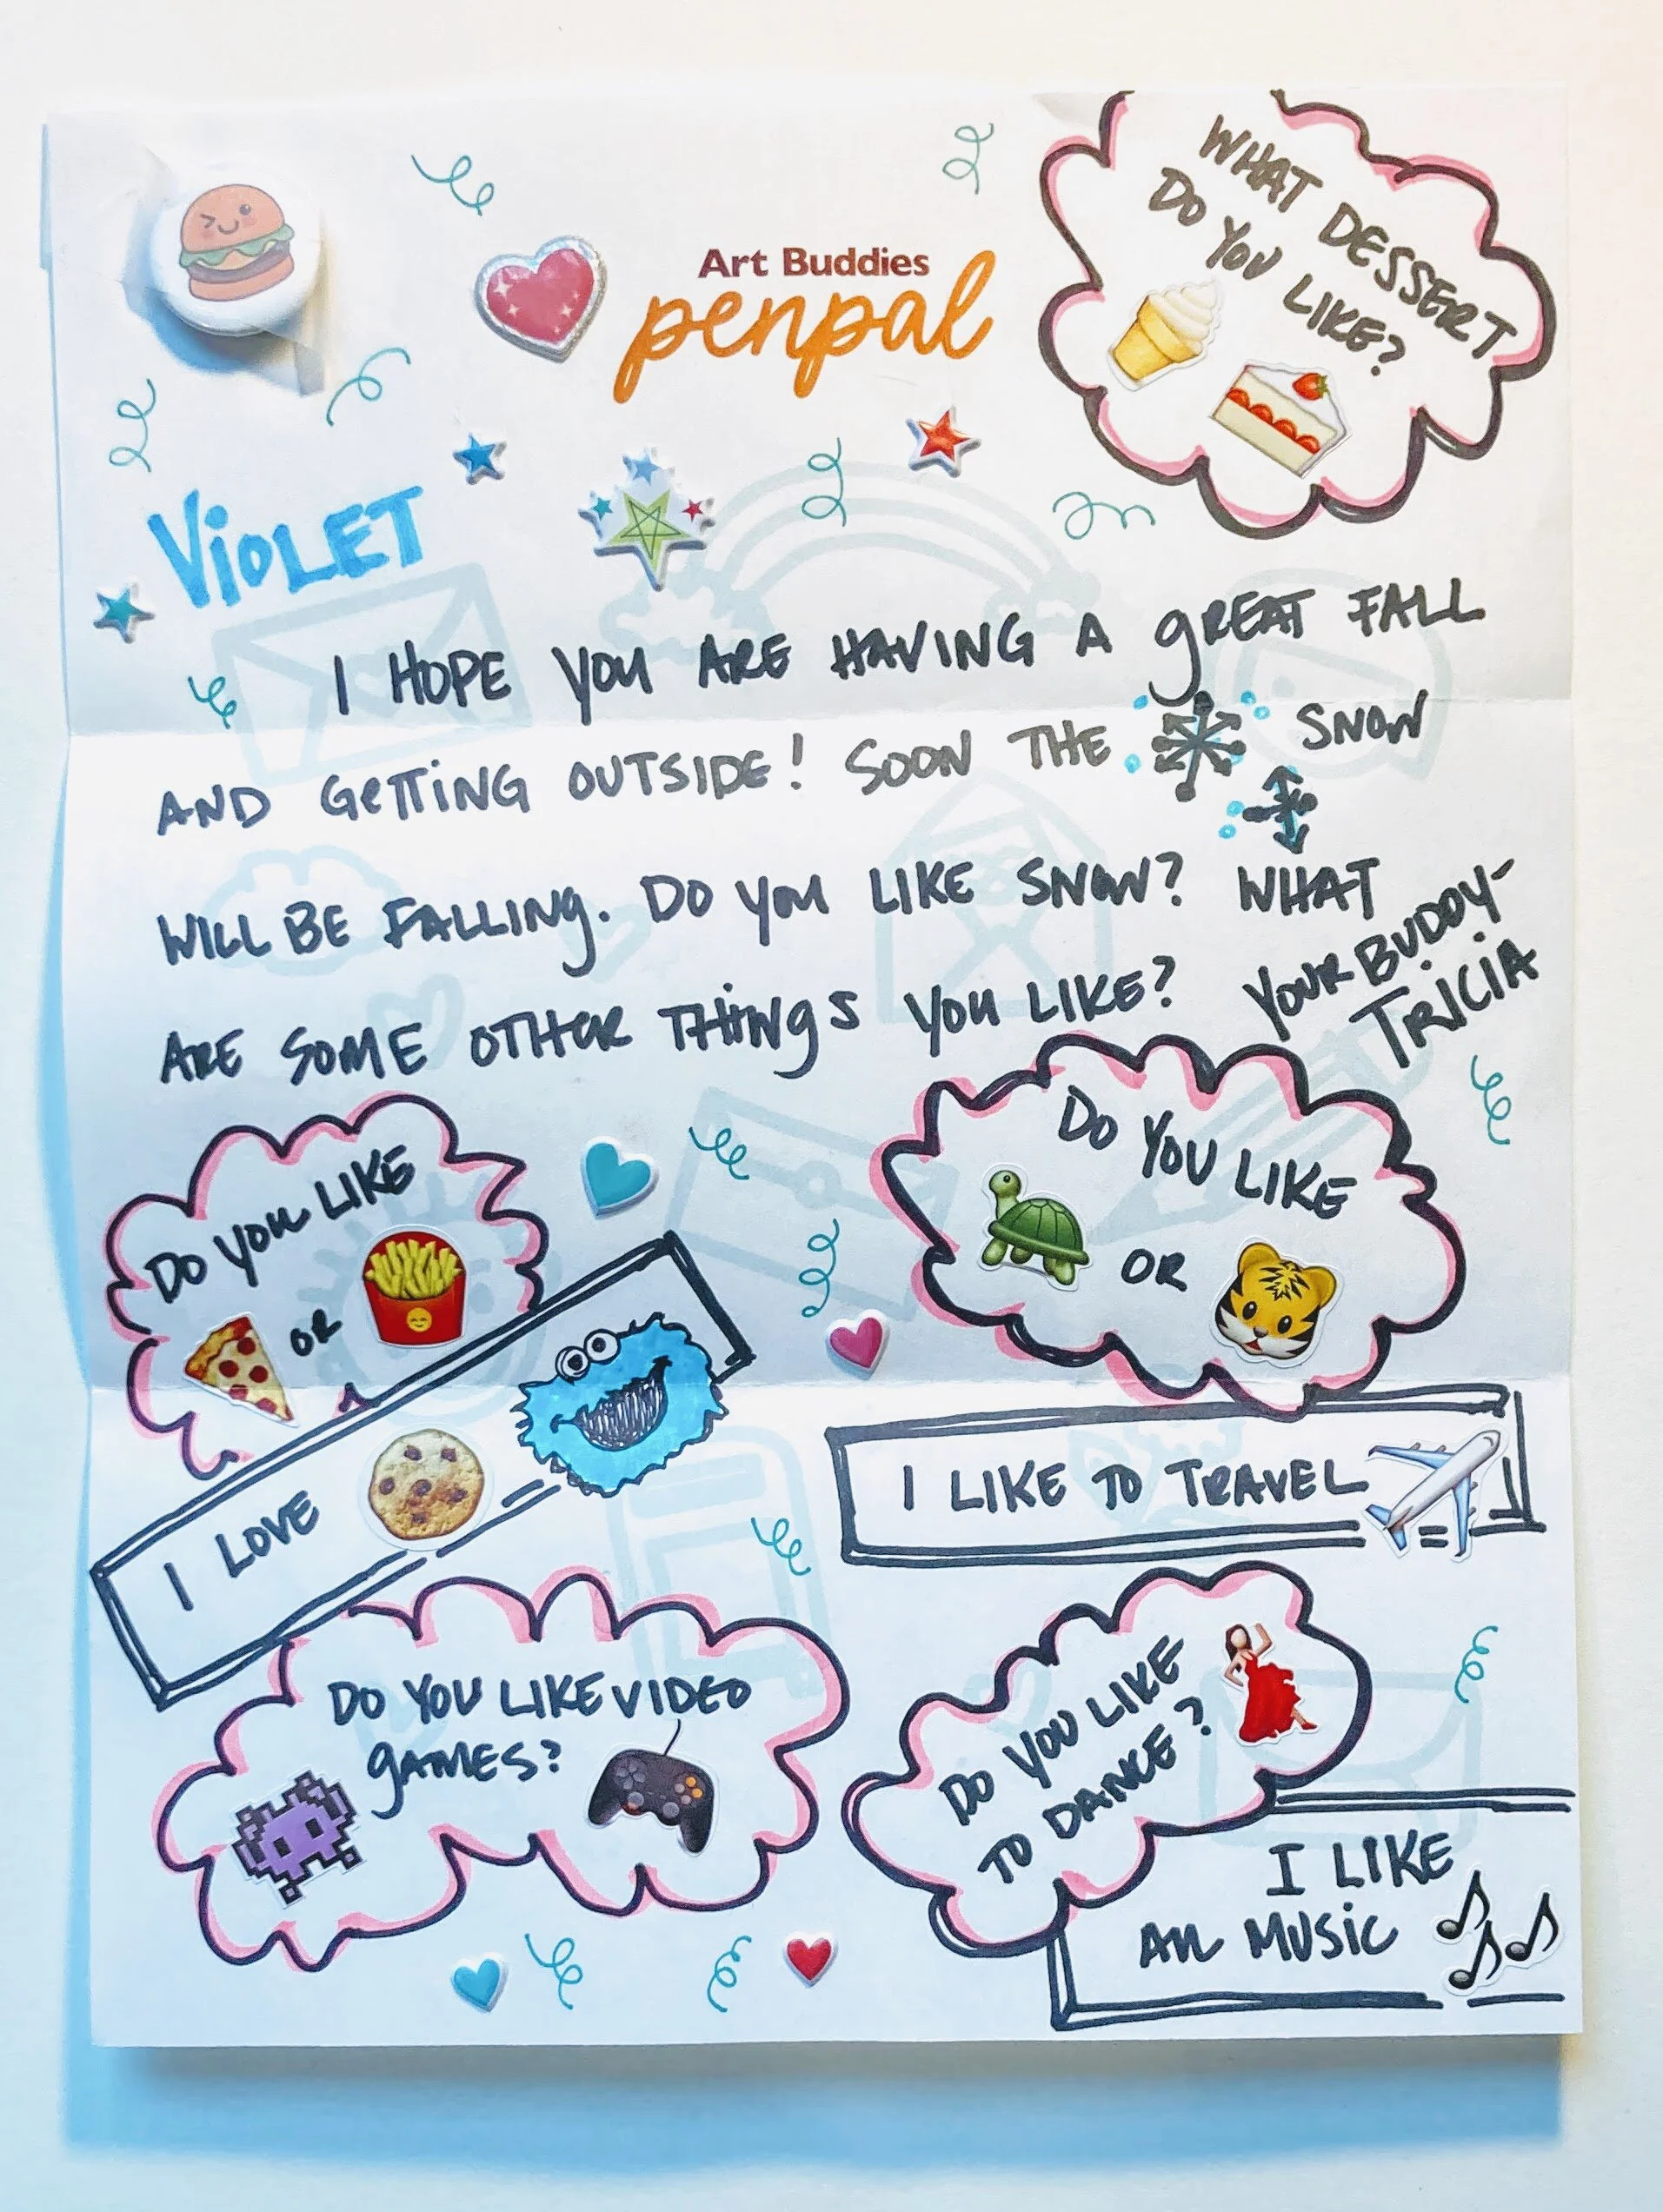 Art Buddies
penpal
WHAT DESSERT
DO YOU LIKE?
VIOLET
I HOPE YOU ARE HAVING A GREAT FALL
AND GETTING OUTSIDE! SOON THE SNOW
WILL BE FALLING. DO YOU LIKE SNOW? WHAT
ARE SOME OTHER THINGS YOU LIKE?
YOUR BUDDY-
TRICIA
DO YOU LIKE
OR
DO YOU LIKE
OR
I LOVE
I LIKE TO TRAVEL
DO YOU LIKE VIDEO
GAMES?
DO YOU LIKE
TO DANCE?
I LIKE
ALL MUSIC